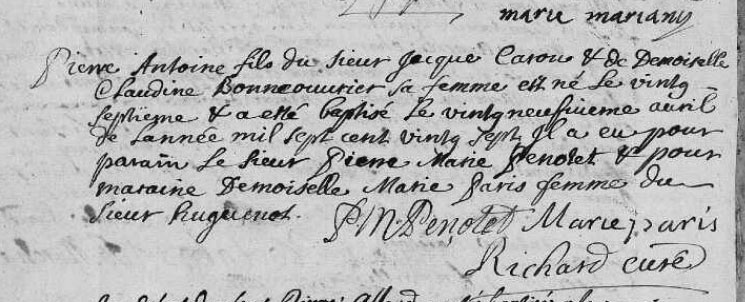 marie mariany
Pierre Antoine fils du sieur Jacque Carou & de Demoiselle
Claudine Bonneouurier sa femme est né Le vintg
septieme & a esté baptisé Le vintgneufuieme auril
de Lannée mil sept cent vintg sept Il a eu pour
parain Le sieur Pierre Marie Penotet & pour
maraine Demoiselle Marie paris femme du
sieur huguenot.
PM Penotet Marie paris
Richard curé